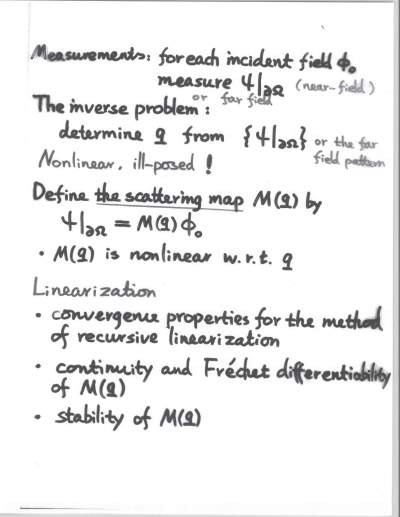 Measurements: for each incident field ϕ₀
measure ψ|∂Ω (near-field)
or far field
The inverse problem:
determine q from {ψ|∂Ω} or the far
field pattern
Nonlinear, ill-posed !
Define the scattering map M(q) by
ψ|∂Ω = M(q) ϕ₀
• M(q) is nonlinear w.r.t. q
Linearization
• convergence properties for the method
of recursive linearization
• continuity and Fréchet differentiability
of M(q)
• stability of M(q)